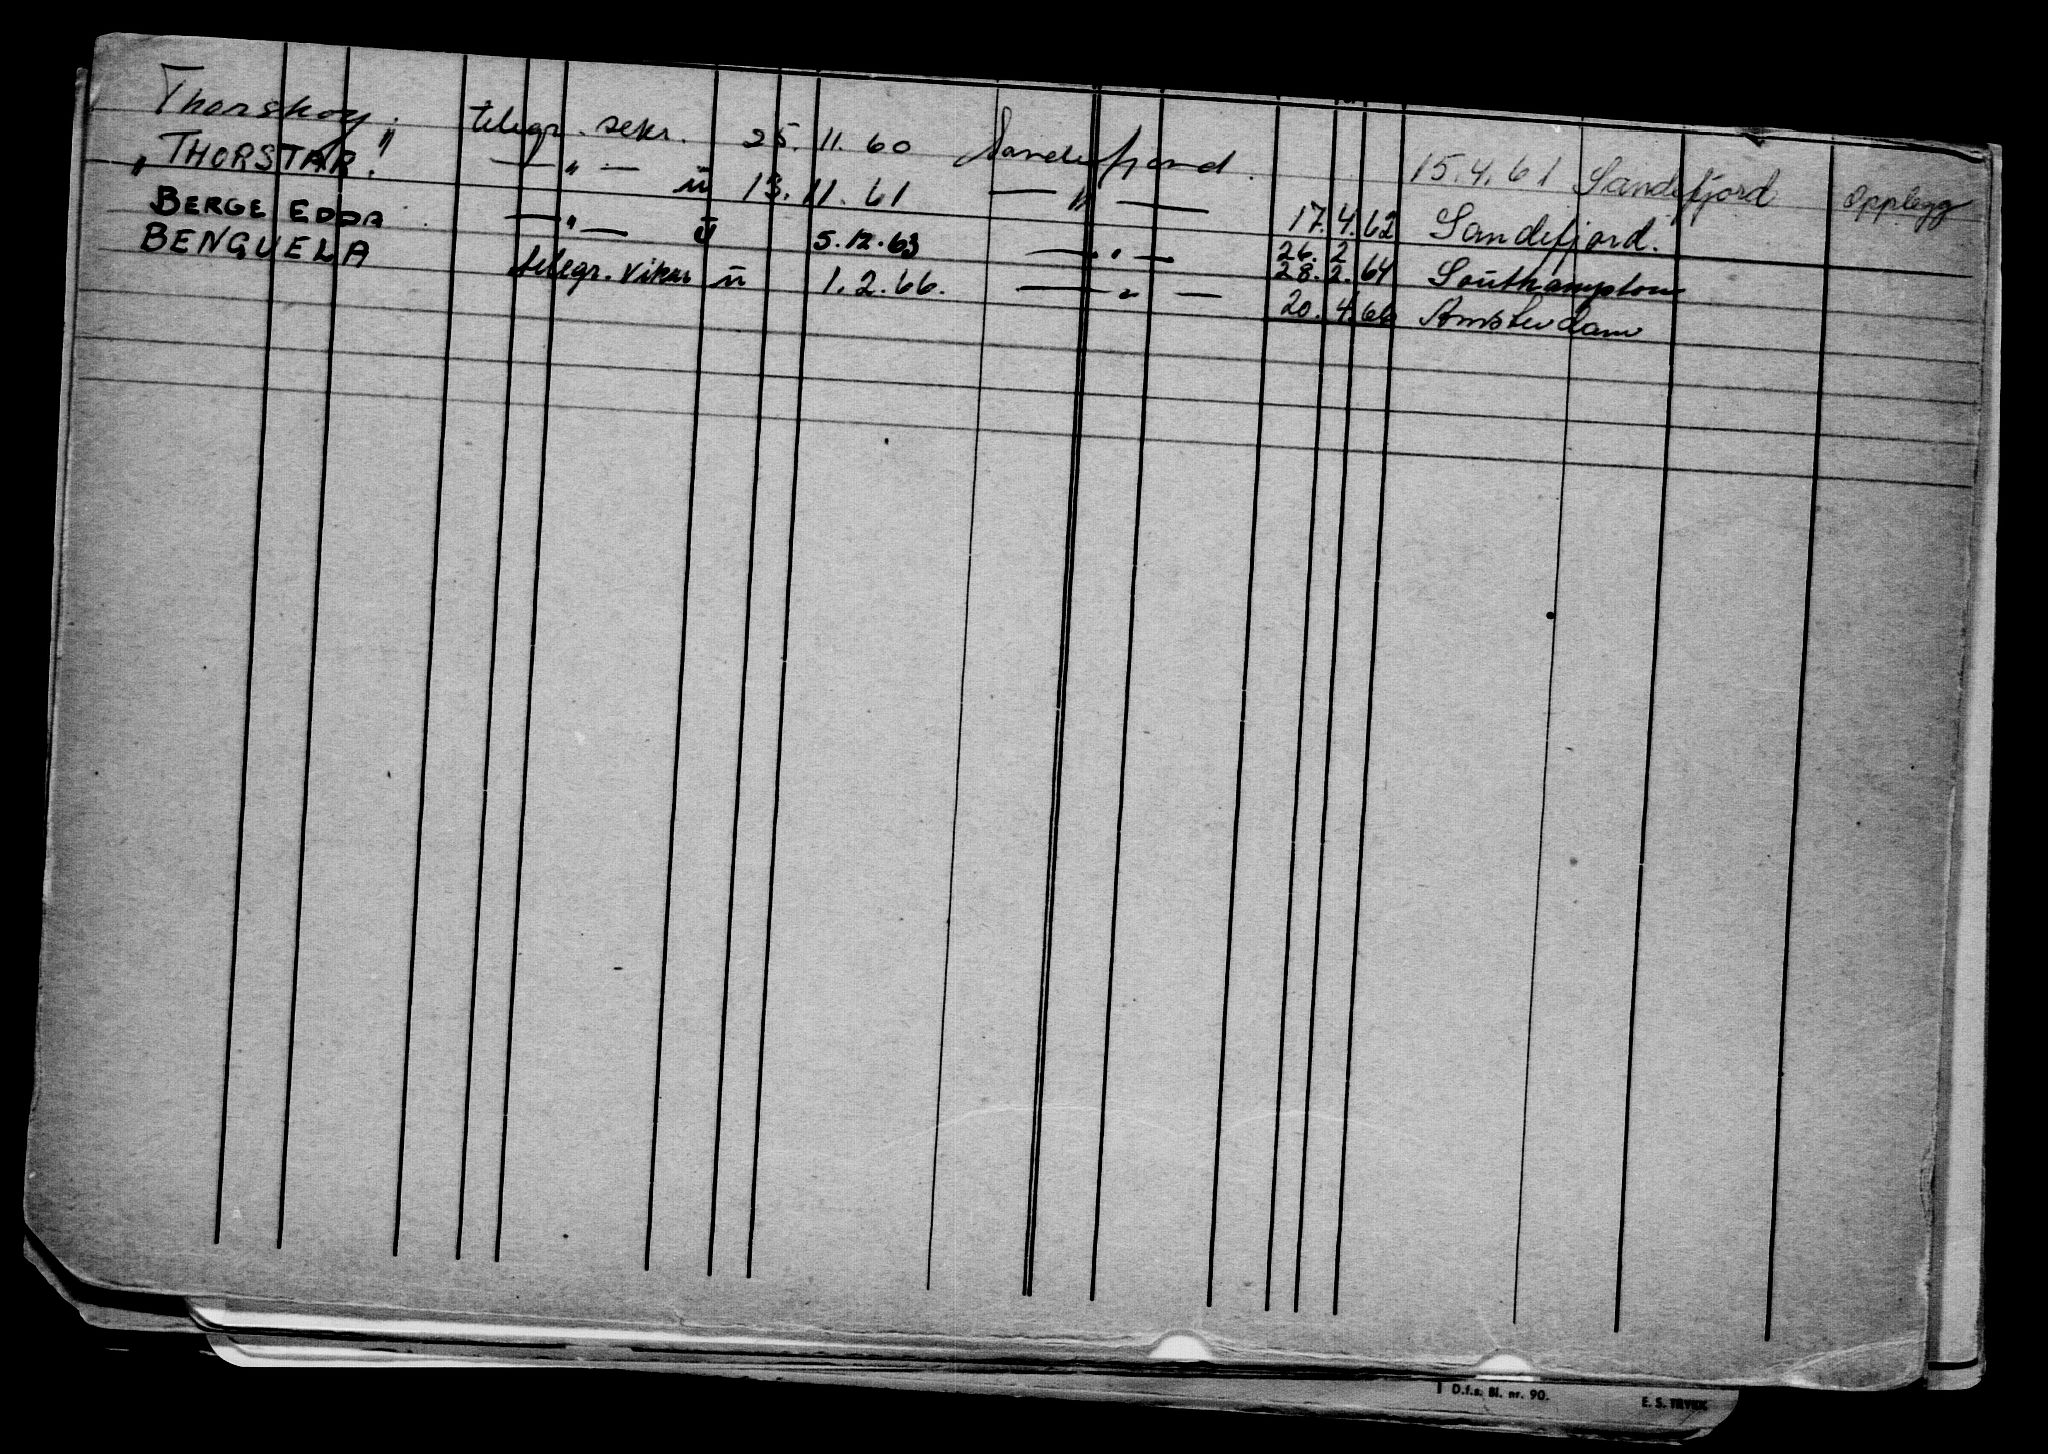 Thorshøy. telegr. sekr. 25.11.60 Sandefjord. 15.4.61 Sandefjord Opplegg
"THORSTAR." — " — ü 13.11.61 — " — 17.4.62 Sandefjord.
BERGE EDDA — " — ü 5.12.63 — " — 26.2 28.2.64 Southampton
BENGUELA telegr. vikar ü 1.2.66. — " — 20.4.66 Amsterdam
D.f.s. Bl. nr. 90. E. S. TRYKK